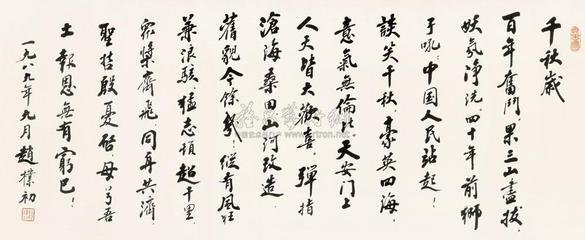 千秋歲
百年奮鬥，果三山盡拔，
妖氛淨洗。四十年前獅
子吼：中國人民站起！
談笑千秋，豪英四海，
意氣無倫比。天安門上
人天皆大歡喜。彈指
滄海桑田，山河改造，
舊貌今餘幾！縱有風狂
兼浪駭，猛志頓超千里
衆槳齊飛，同舟共濟，
聖哲殷憂啓。母兮吾
土，報恩無有窮已！
一九八九年九月趙樸初